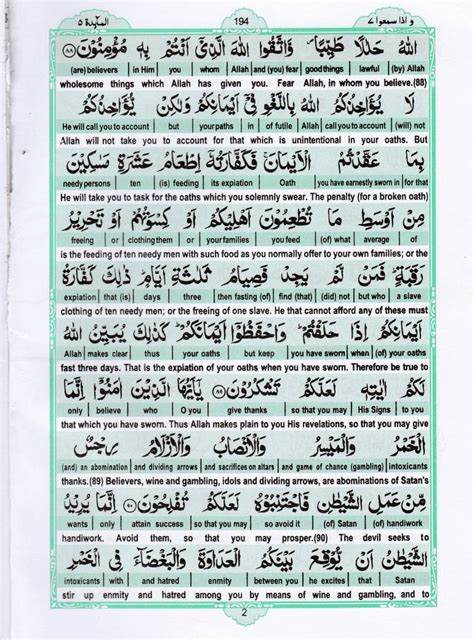 المآئدة ٥ 194 و اذا سمعوا ٧
اللّٰهُ حَلٰلًا طَيِّبًا ۖ وَّاتَّقُوا اللّٰهَ الَّذِيْٓ اَنْتُمْ بِهٖ مُؤْمِنُوْنَ ﴿٨٨﴾
(are) believers | in Him | you | whom | Allah | and (you) fear | good things | lawful | (by) Allah
wholesome things which Allah has given you. Fear Allah, in whom you believe.(88)
لَا يُؤَاخِذُكُمُ اللّٰهُ بِاللَّغْوِ فِيْٓ اَيْمَانِكُمْ وَلٰكِنْ يُّؤَاخِذُكُمْ
He will call you to account | but | your oaths | in | of futile | Allah | call you to account | (will) not
Allah will not take you to account for that which is unintentional in your oaths. But
بِمَا عَقَّدْتُّمُ الْاَيْمَانَ ۚ فَكَفَّارَتُهٗٓ اِطْعَامُ عَشَرَةِ مَسٰكِيْنَ
needy persons | ten | (is) feeding | its expiation | Oath | you have earnestly sworn in | for that
He will take you to task for the oaths which you solemnly swear. The penalty (for a broken oath)
مِنْ اَوْسَطِ مَا تُطْعِمُوْنَ اَهْلِيْكُمْ اَوْ كِسْوَتُهُمْ اَوْ تَحْرِيْرُ
freeing | or | clothing them | or | your families | you feed | (of) what | average | of
is the feeding of ten needy men with such food as you normally offer to your own families; or the
رَقَبَةٍ ۗ فَمَنْ لَّمْ يَجِدْ فَصِيَامُ ثَلٰثَةِ اَيَّامٍ ۗ ذٰلِكَ كَفَّارَةُ
expiation | that (is) | days | three | then fasting (of) | find (that) | (did) not | but who | a slave
clothing of ten needy men; or the freeing of one slave. He that cannot afford any of these must
اَيْمَانِكُمْ اِذَا حَلَفْتُمْ ۗ وَاحْفَظُوْٓا اَيْمَانَكُمْ ۗ كَذٰلِكَ يُبَيِّنُ اللّٰهُ
Allah | makes clear | thus | your oaths | but keep | you have sworn | when | (of) your oaths
fast three days. That is the expiation of your oaths when you have sworn. Therefore be true to
لَكُمْ اٰيٰتِهٖ لَعَلَّكُمْ تَشْكُرُوْنَ ﴿٨٩﴾ يٰٓاَيُّهَا الَّذِيْنَ اٰمَنُوْٓا اِنَّمَا
only | believe | who | O you | give thanks | so that you may | His Signs | to you
that which you have sworn. Thus Allah makes plain to you His revelations, so that you may give
الْخَمْرُ وَالْمَيْسِرُ وَالْاَنْصَابُ وَالْاَزْلَامُ رِجْسٌ
(and) an abomination | and dividing arrows | and sacrifices on altars | and game of chance (gambling) | intoxicants
thanks.(89) Believers, wine and gambling, idols and dividing arrows, are abominations of Satan's
مِّنْ عَمَلِ الشَّيْطٰنِ فَاجْتَنِبُوْهُ لَعَلَّكُمْ تُفْلِحُوْنَ ﴿٩٠﴾ اِنَّمَا يُرِيْدُ
wants | only | attain success | so that you may | so avoid it | (of) Satan | (of) handiwork
handiwork. Avoid them, so that you may prosper.(90) The devil seeks to
الشَّيْطٰنُ اَنْ يُّوْقِعَ بَيْنَكُمُ الْعَدَاوَةَ وَالْبَغْضَآءَ فِي الْخَمْرِ
intoxicants | with | and hatred | enmity | between you | he excites | that | Satan
stir up enmity and hatred among you by means of wine and gambling, and to
2